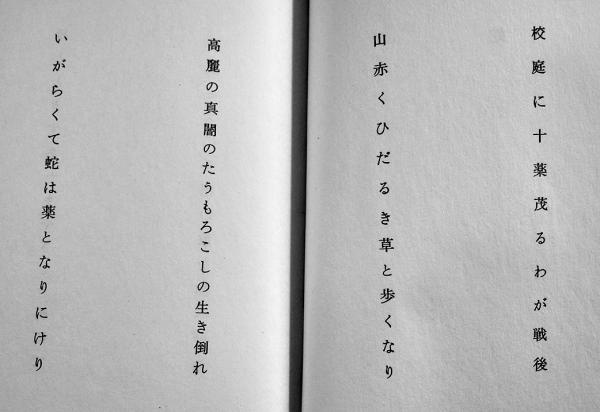 校庭に十薬茂るわが戦後
山赤くひだるき草と歩くなり
高麗の真闇のたうもろこしの生き倒れ
いがらくて蛇は薬となりにけり